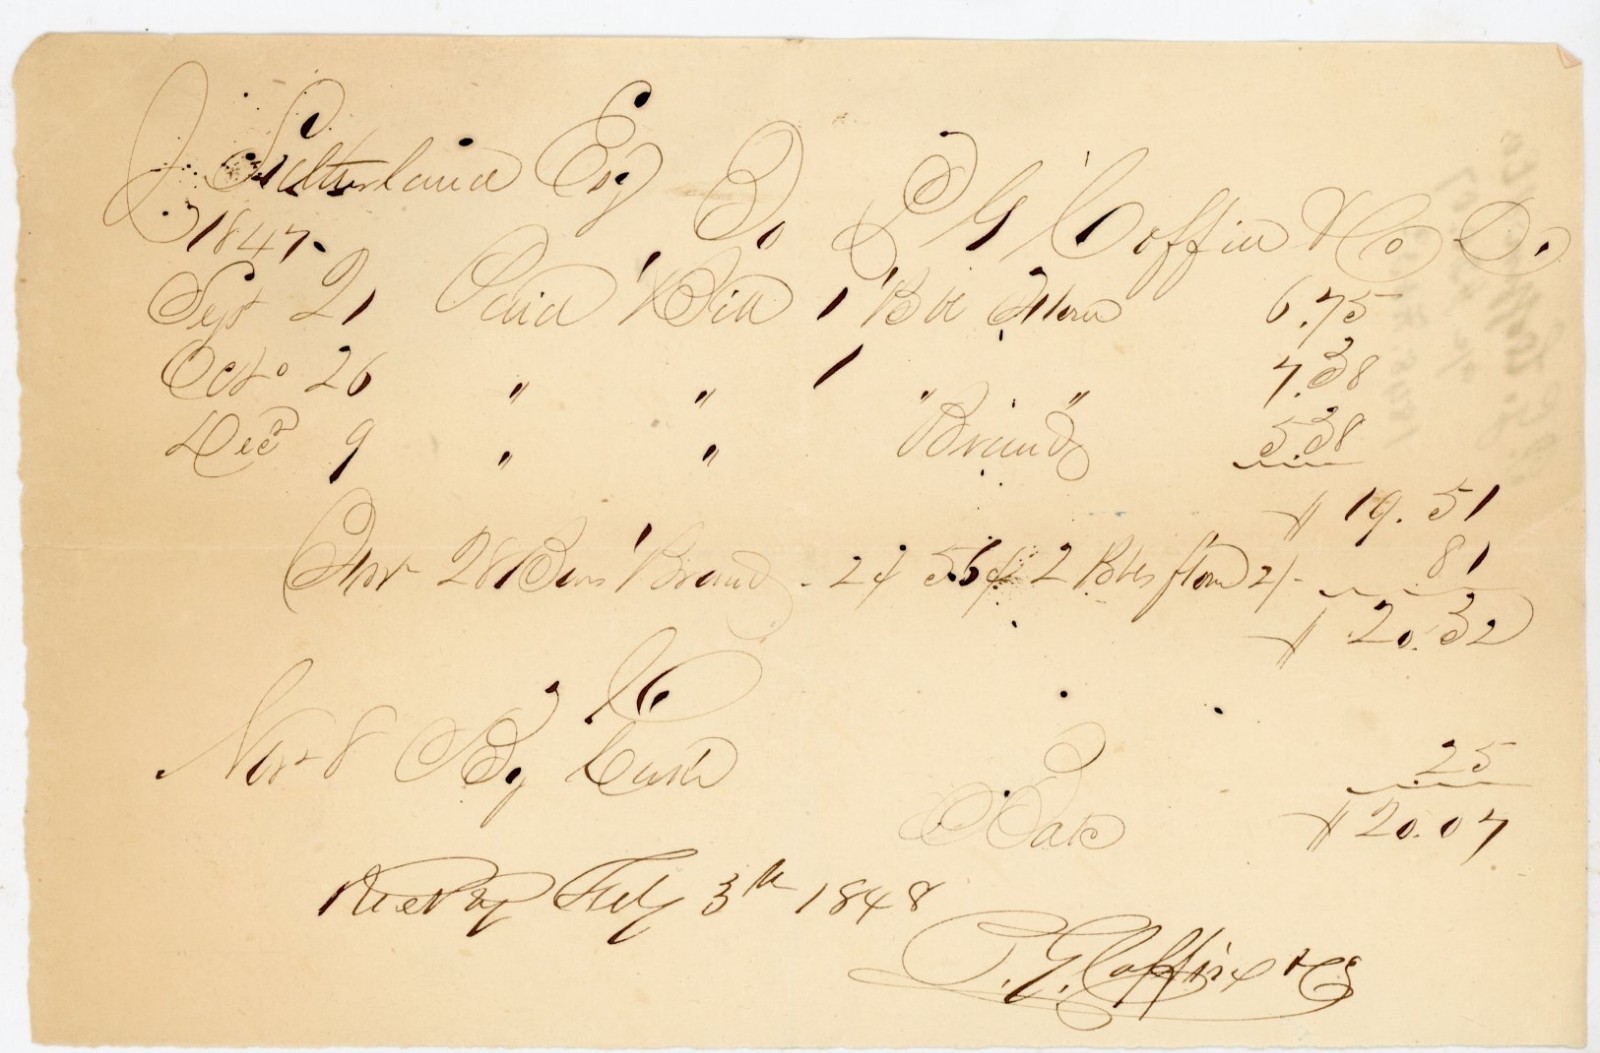 J Sutherland Esq To P G Coffin & Co Dr.
1847
Sept 21 Paid Bill 1 Bbl Flour 6.75
Octo 26 " " 1 " " 7.38
Decr 9 " " Brand 5 38
$ 19.51
28 Bus Brand - 2/ 56/ 2 Bbls flour 2/- 81
$ 20.32
Cr
Nov 8 By Cash 25
$ 20.07
Rec Pay Feby 3th 1848
P. G. Coffin & Co